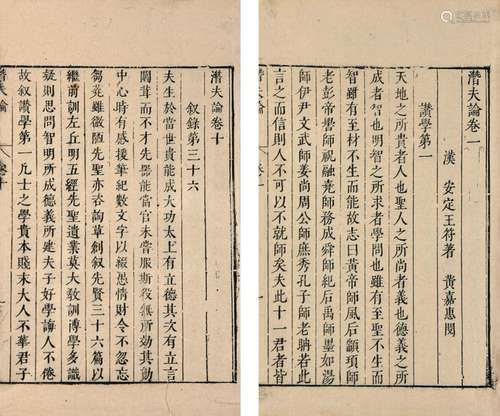 潛夫論卷一
漢 安定王符著 黃嘉惠閱
讚學第一
天地之所貴者人也聖人之所尚者義也德義之所
成者智也明智之所求者學問也雖有至聖不生而
智雖有至材不生而能故志曰黃帝師風后顓頊師
老彭帝嚳師祝融堯師務成舜師紀后禹師墨如湯
師伊尹文武師姜尚周公師庶秀孔子師老聃若此
言之而信則人不可以不就師矣夫此十一君者皆
潛夫論 卷一
潛夫論卷十
叙錄第三十六
夫生於當世貴能成大功太上有立德其次有立言
闒茸而不才先器能當官未嘗服斯役無所効其勛
中心時有感援筆紀數文字以綴愚情財令不忽忘
芻蕘雖微陋先聖亦咨詢草創叙先賢三十六篇以
繼前訓左丘明五經先聖遺業莫大教訓博學多識
疑則思問智明所成德義所建夫子好學誨人不倦
故叙讚學第一凡士之學貴本賤末大人不華君子
潛夫論 卷十